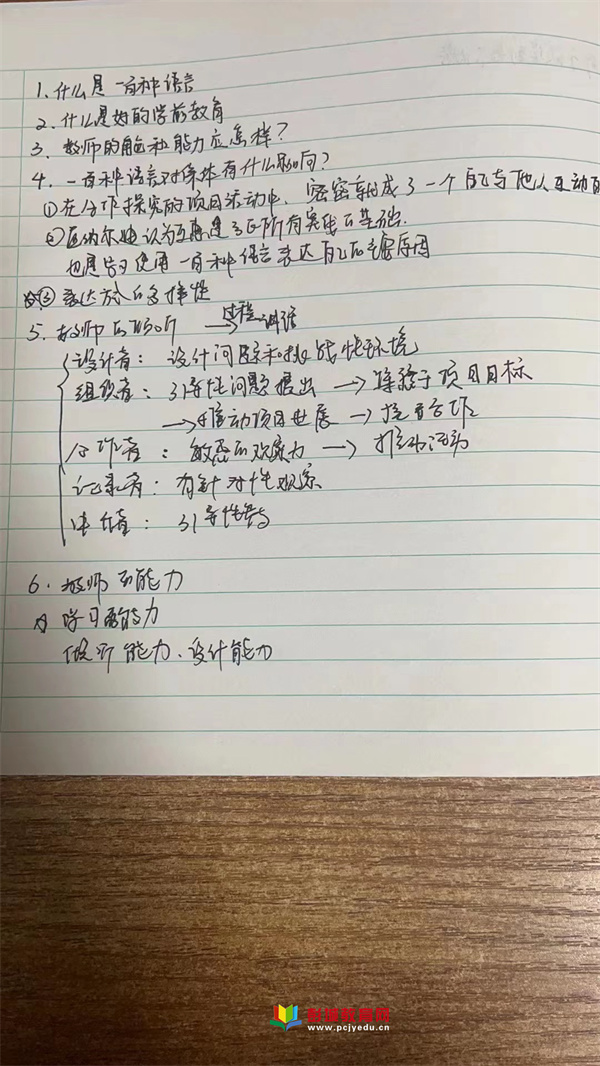 1. 什么是一百种语言
2. 什么是好的学前教育
3. 教师的角色和能力应怎样?
4. 一百种语言对集体有什么影响?
①在合作探究的项目活动中, 密密制成了一个自己与他人互动的
②认为互惠是 所有实践的基础.
也是学习使用一百种语言表达自己的主要原因
☆③ 表达方式的多样性
5. 教师的角色 → 过程
设计者: 设计问题和挑战性环境
组织者: 引导性问题提出 → 项目目标
→推动项目进展 →
合作者: 敏感的观察力 → 推动活动
记录者: 有针对性观察
引导性
6. 教师的能力
☆ 学习的能力
能力、设计能力
www.pcjyedu.cn